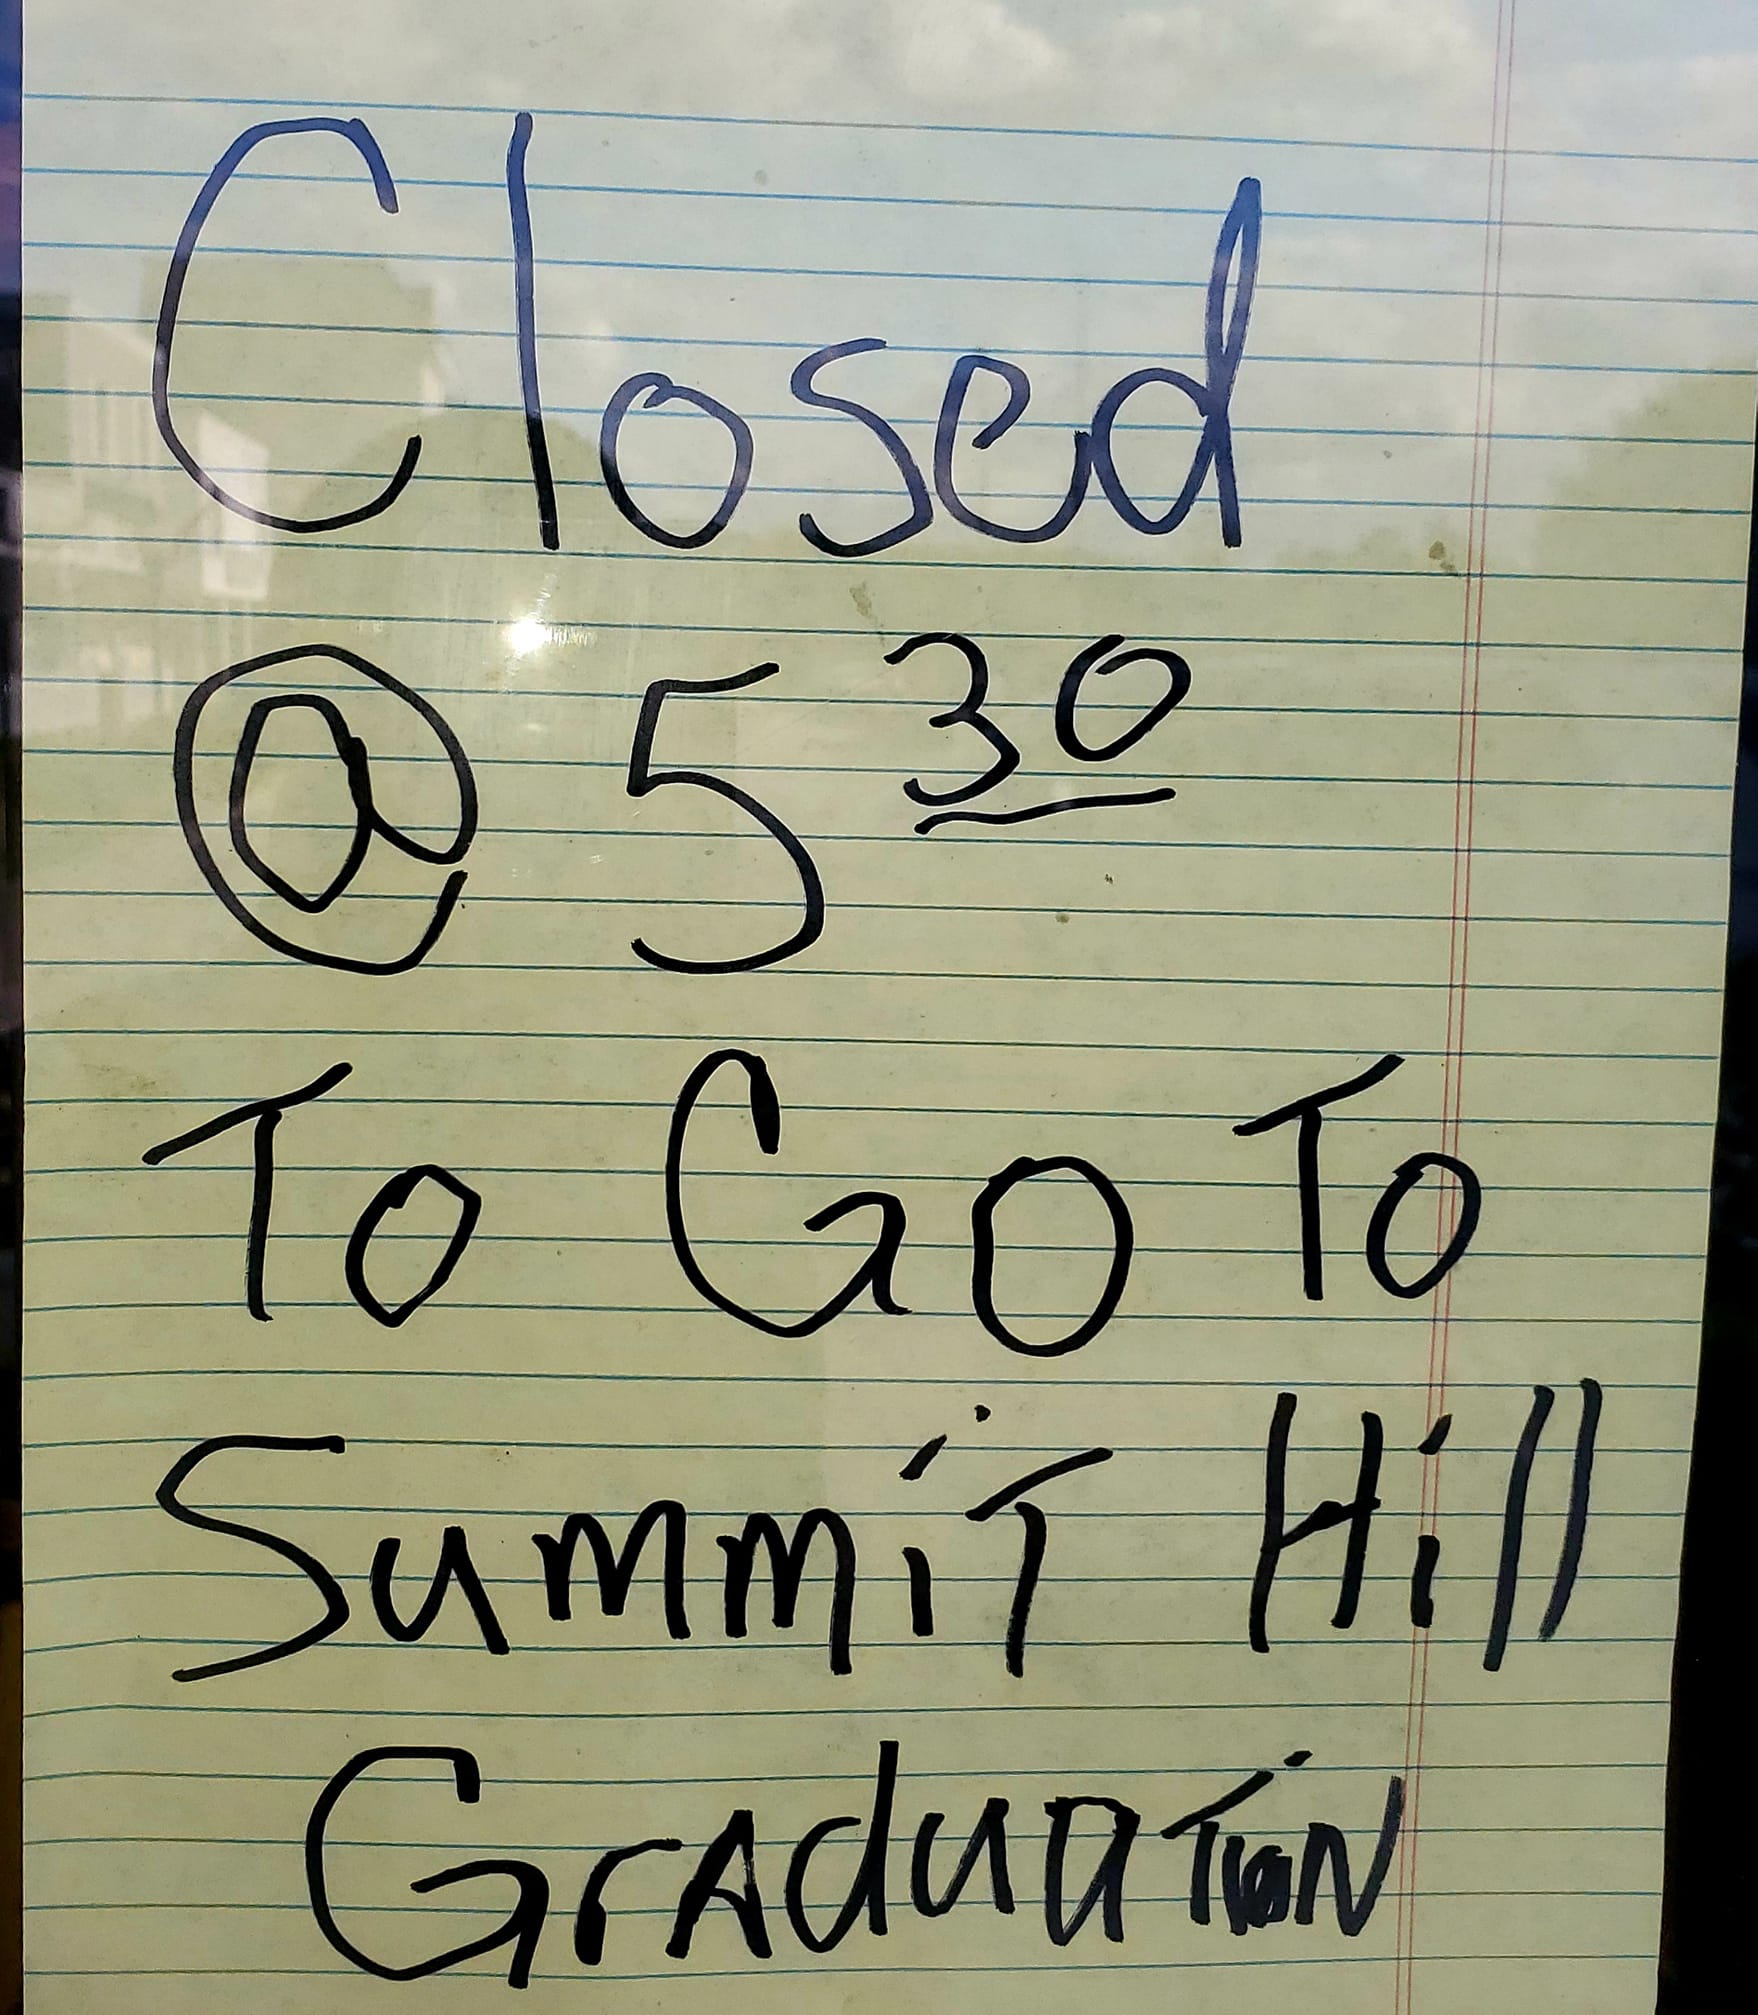 Closed
@ 5 30
To Go To
Summit Hill
Graduation